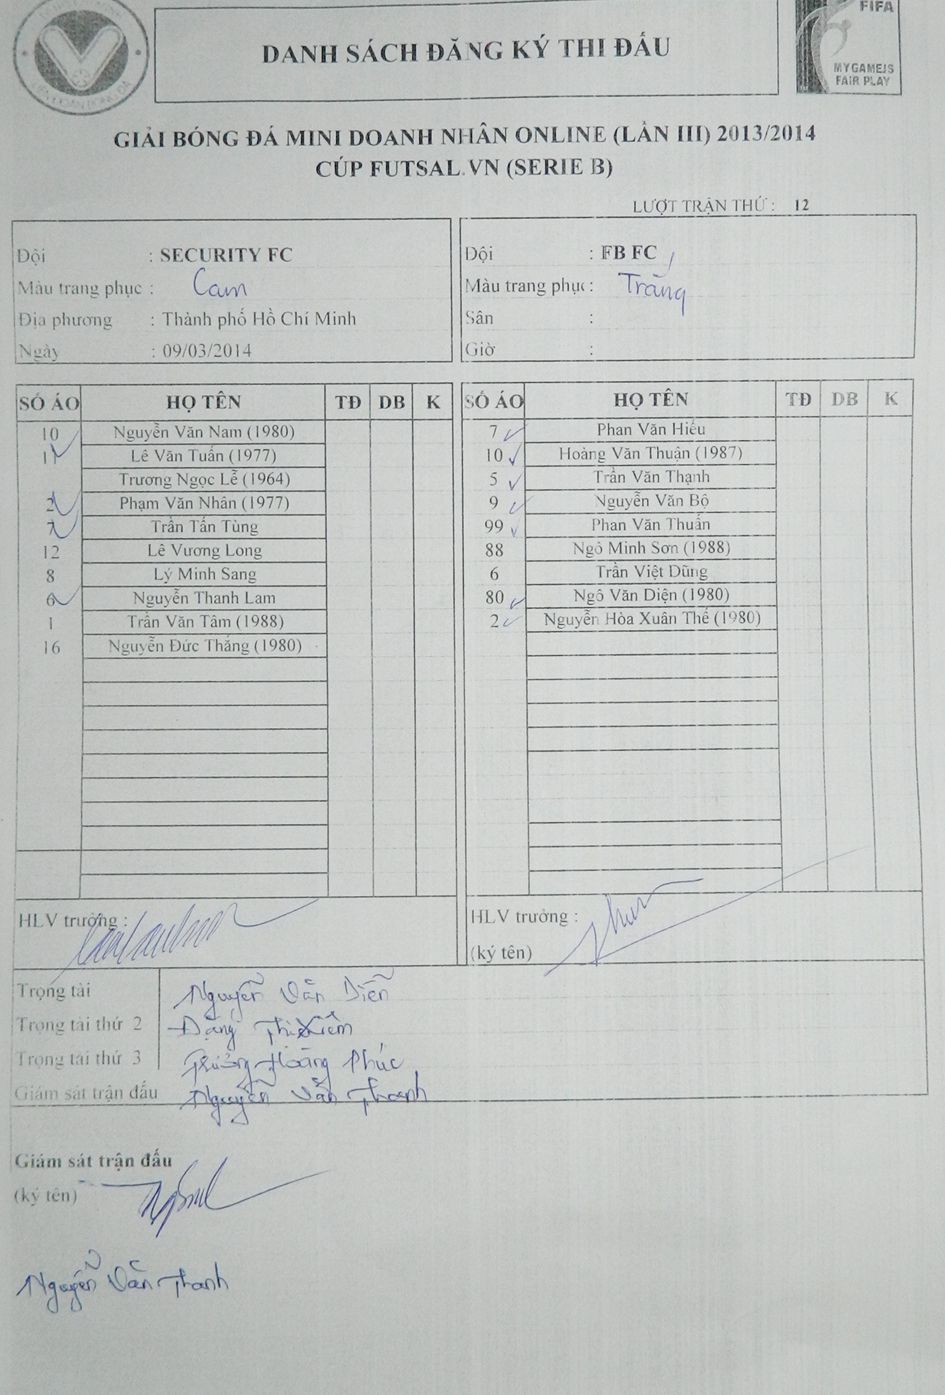 DANH SÁCH ĐĂNG KÝ THI ĐẤU
FIFA
MYGAMEIS
FAIR PLAY
GIẢI BÓNG ĐÁ MINI DOANH NHÂN ONLINE (LẦN III) 2013/2014
CÚP FUTSAL.VN (SERIE B)
LƯỢT TRẬN THỨ : 12
Đội : SECURITY FC
Màu trang phục : Cam
Địa phương : Thành phố Hồ Chí Minh
Ngày : 09/03/2014
Đội : FB FC
Màu trang phục : Trắng
Sân :
Giờ :
SỐ ÁO HỌ TÊN TĐ DB K
10 Nguyễn Văn Nam (1980)
11 Lê Văn Tuấn (1977)
Trương Ngọc Lễ (1964)
2 Phạm Văn Nhân (1977)
7 Trần Tấn Tùng
12 Lê Vương Long
8 Lý Minh Sang
6 Nguyễn Thanh Lam
1 Trần Văn Tâm (1988)
16 Nguyễn Đức Thắng (1980)
SỐ ÁO HỌ TÊN TĐ DB K
7 Phan Văn Hiếu
10 Hoàng Văn Thuận (1987)
5 Trần Văn Thạnh
9 Nguyễn Văn Bộ
99 Phan Văn Thuẩn
88 Ngô Minh Sơn (1988)
6 Trần Việt Dũng
80 Ngô Văn Diện (1980)
2 Nguyễn Hòa Xuân Thế (1980)
HLV trưởng :
HLV trưởng :
(ký tên)
Trọng tài Nguyễn Văn Diễn
Trọng tài thứ 2 Đặng Thị Kiềm
Trọng tài thứ 3 Trương Hoàng Phúc
Giám sát trận đấu Nguyễn Văn Thanh
Giám sát trận đấu
(ký tên)
Nguyễn Văn Thanh